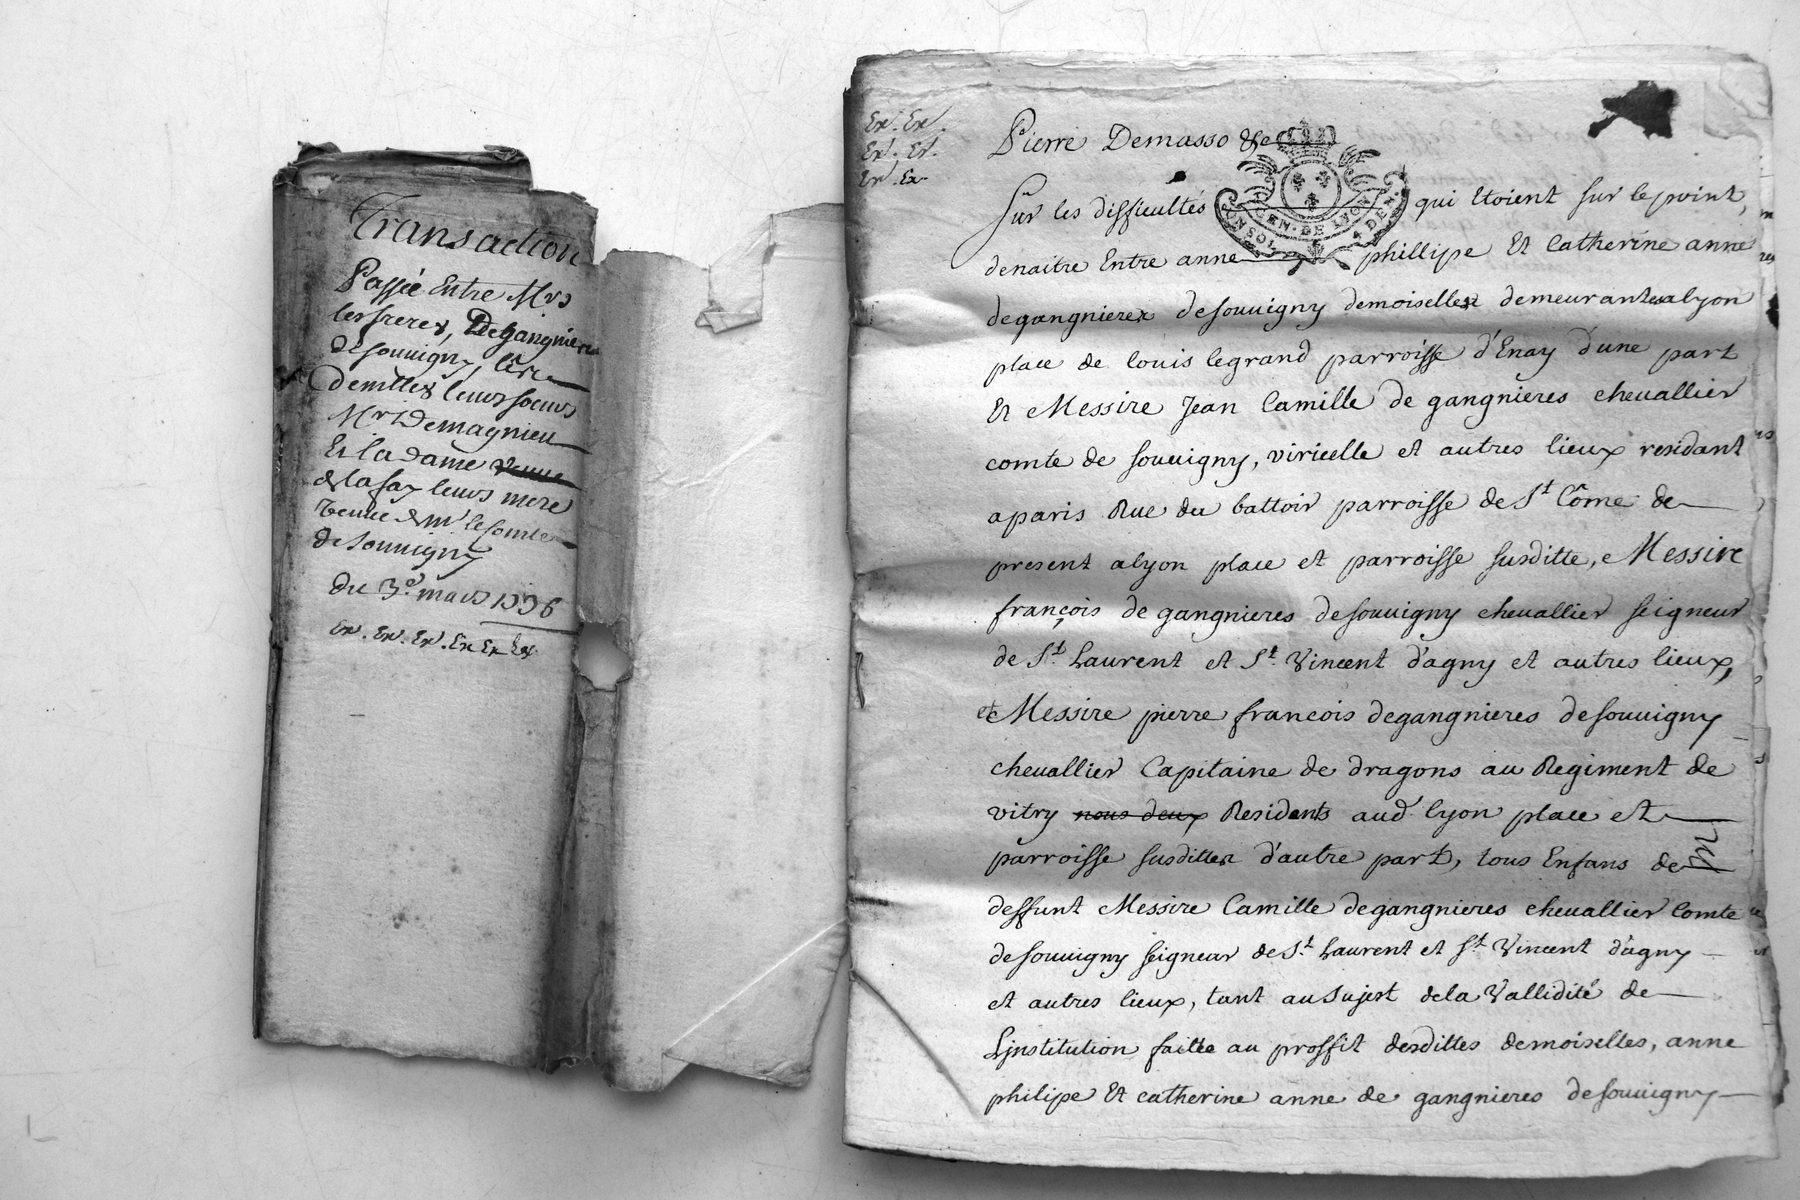 Transaction
Passée Entre Mrs
les freres, Degangnieres
de souvigny,
demlles leurs soeurs
Mr Demagnieu
Et la dame veuve
delafay leurs mere
veuve de Mr le Comte
de Souvigny
du 3e. mars 1736
Ex. Ex. Ex. Ex Ex Ex
Ex. Ex.
Ex. Ex.
Ex. Ex.
Pierre Demasso &c
GEN. DE LYON
Sur les difficultés qui Etoient sur le point,
denaitre Entre anne phillipe Et Catherine anne
degangnieres desouvigny demoiselles demeurantes alyon
place de louis legrand parroisse d'Enay d'une part
Et Messire Jean Camille de gangnieres chevallier
comte de souvigny, viricelle et autres lieux residant
aparis Rue du battoir parroisse de St Côme de
present alyon place et parroisse susditte, Messire
françois de gangnieres desouvigny chevallier seigneur
de St. Laurent et St. Vincent d'agny et autres lieux,
et Messire pierre francois degangnieres desouvigny
chevallier Capitaine de dragons au Regiment de
vitry nous deux Residents aud. lyon place et
parroisse susdittes d'autre part, tous Enfans de
deffunt Messire Camille degangnieres chevallier Comte
desouvigny seigneur de St. Laurent et St. Vincent d'agny
et autres lieux, tant au Sujest dela Vallidité de
Ljnstitution faitte au proffit desdittes demoiselles, anne
philipe Et catherine anne de gangnieres desouvigny